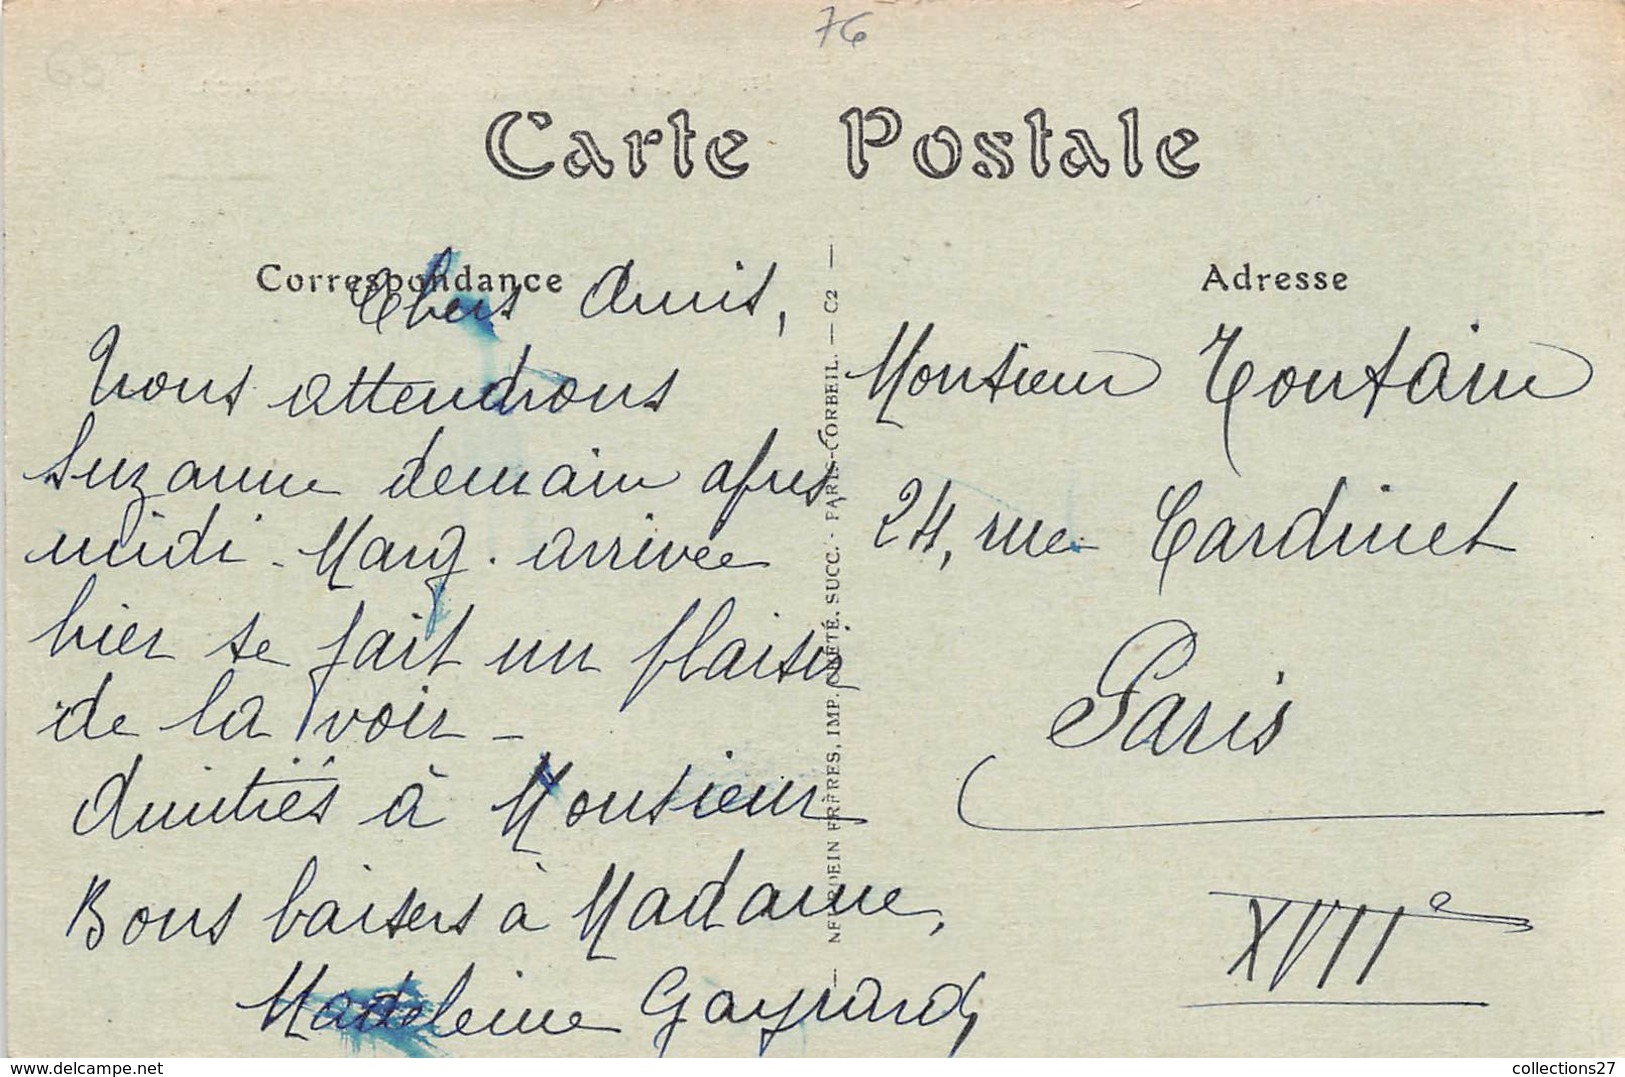 76
Carte Postale
Correspondance
Chers Amis,
Nous attendrons
Suzanne demain après
midi - Marg. arrivée
hier se fait un plaisir
de la voir -
Amitiés à Monsieur
Bons baisers à Madame,
Madeleine Gayrard
NEURDEIN FRÈRES, IMP. CRÉTÉ, SUCC. - PARIS-CORBEIL. — C2 —
Adresse
Monsieur Toutain
24, rue Cardinet
Paris
XVIIe
www.delcampe.net
collections27